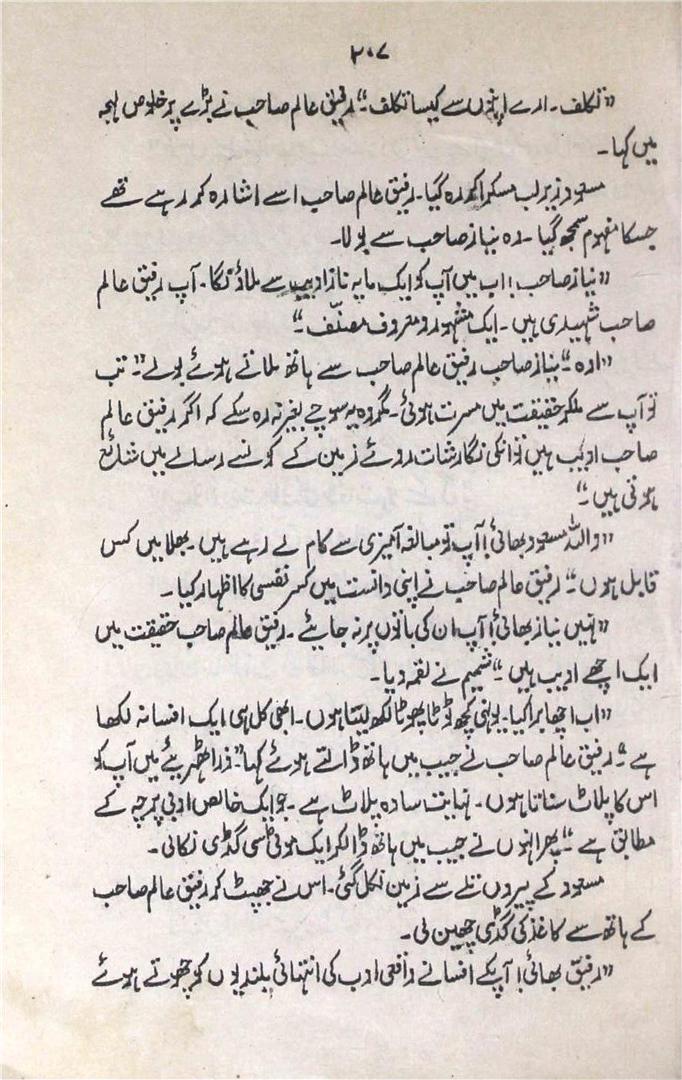 ۲۰۷
”تکلف۔ ارے اپنوں سے کیسا تکلف۔“ رفیق عالم صاحب نے بڑے پر خلوص لہجہ
میں کہا۔
مسعود زیر لب مسکرا کر رہ گیا۔ رفیق عالم صاحب اسے اشارہ کر رہے تھے
جسکا مفہوم سمجھ گیا۔ وہ نیاز صاحب سے بولا۔
”نیاز صاحب! اب میں آپ کو ایک مایہ ناز ادیب سے ملاؤنگا۔ آپ رفیق عالم
صاحب شہیدی ہیں۔ ایک مشہور و معروف مصنّف۔“
”اوہ۔“ نیاز صاحب رفیق عالم صاحب سے ہاتھ ملاتے ہوئے بولے ”تب
تو آپ سے ملکر حقیقت میں مسرت ہوئی۔ مگر وہ یہ سوچے بغیر نہ رہ سکے کہ اگر رفیق عالم
صاحب ادیب ہیں تو انکی نگارشات روئے زمین کے کونسے رسالے میں شائع
ہوتی ہیں۔“
”واللہ مسعود بھائی! آپ تو مبالغہ آمیزی سے کام لے رہے ہیں۔ بھلا میں کس
قابل ہوں۔“ رفیق عالم صاحب نے اپنی دانست میں کسر نفسی کا اظہار کیا۔
”نہیں نیاز بھائی! آپ ان کی باتوں پر نہ جایئے۔ رفیق عالم صاحب حقیقت میں
ایک اچھے ادیب ہیں۔“ شمیم نے لقمہ دیا۔
”اب اچھا برا کیا۔ یونہی کچھ ٹوٹا پھوٹا لکھ لیتا ہوں۔ ابھی کل ہی ایک افسانہ لکھا
ہے“ رفیق عالم صاحب نے جیب میں ہاتھ ڈالتے ہوئے کہا ”ذرا ٹھہریئے میں آپ کو
اس کا پلاٹ سناتا ہوں۔ نہایت سادہ پلاٹ ہے۔ جو ایک خالص ادبی پرچہ کے
مطابق ہے۔“ پھر انہوں نے جیب میں ہاتھ ڈالکر ایک موٹی سی گڈی نکالی۔
مسعود کے پیروں تلے سے زمین نکل گئی۔ اس نے جھپٹ کر رفیق عالم صاحب
کے ہاتھ سے کاغذ کی گڈی چھین لی۔
”رفیق بھائی! آپکے افسانے واقعی ادب کی انتہائی بلندیوں کو چھوتے ہوئے